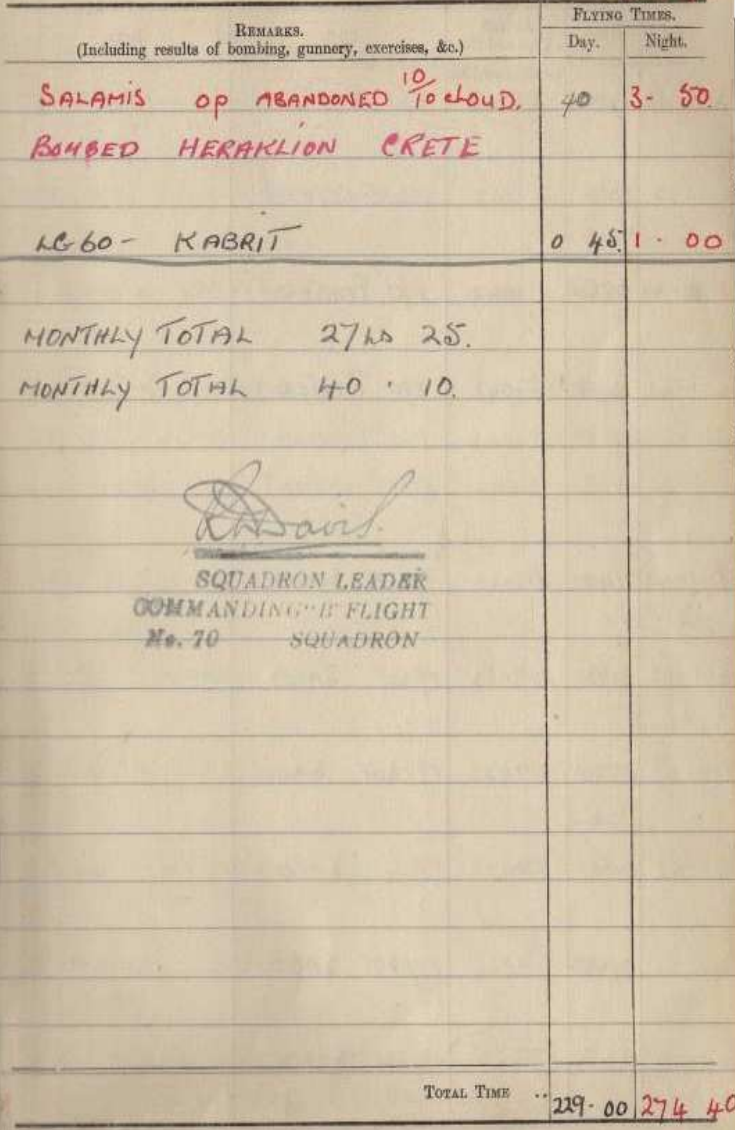 REMARKS.
(Including results of bombing, gunnery, exercises, &c.)
FLYING TIMES.
Day. Night.
SALAMIS OP ABANDONED 10/10 CLOUD. 40 3- 50
BOMBED HERAKLION CRETE
LG 60 - KABRIT 0 45. 1 . 00
MONTHLY TOTAL 27 hs 25.
MONTHLY TOTAL 40 . 10.
Davis.
SQUADRON LEADER
COMMANDING "B" FLIGHT
No. 70 SQUADRON
TOTAL TIME .. 229. 00 274 40